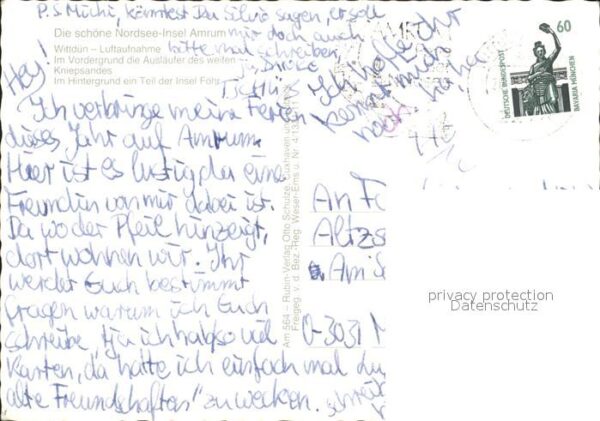 P.S Michi, könntest Du Silvio sagen, er soll
mir doch auch
bitte mal schreiben.
Die schöne Nordsee-Insel Amrum
Wittdün – Luftaufnahme
Im Vordergrund die Ausläufer des weiten
Kniepsandes
Im Hintergrund ein Teil der Insel Föhr
Hey!
Ich verbringe meine Ferien
dieses Jahr auf Amrum.
Hier ist es lustig, da eine
Freundin von mir dabei ist.
Da wo der Pfeil hinzeigt,
dort wohnen wir. Ihr
werdet Euch bestimmt
fragen warum ich Euch
schreibe. Tja ich hab so viel
Karten, da hatte ich einfach mal
alte Freundschaften" zu wecken.
Ich hoffe ihr
kennt mich
noch. Ha ha
60
DEUTSCHE BUNDESPOST
BAVARIA MÜNCHEN
Am 564 – Rubin-Verlag Otto Schütze, Cuxhaven
Freigeg. v. d. Bez.-Reg. Weser-Ems u. Nr. 4
An
Am
O-3031
privacy protection
Datenschutz